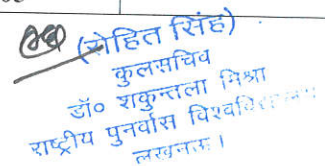 (रोहित सिंह)
कुलसचिव
डॉ० शकुन्तला मिश्रा
राष्ट्रीय पुनर्वास विश्वविद्यालय
लखनऊ।